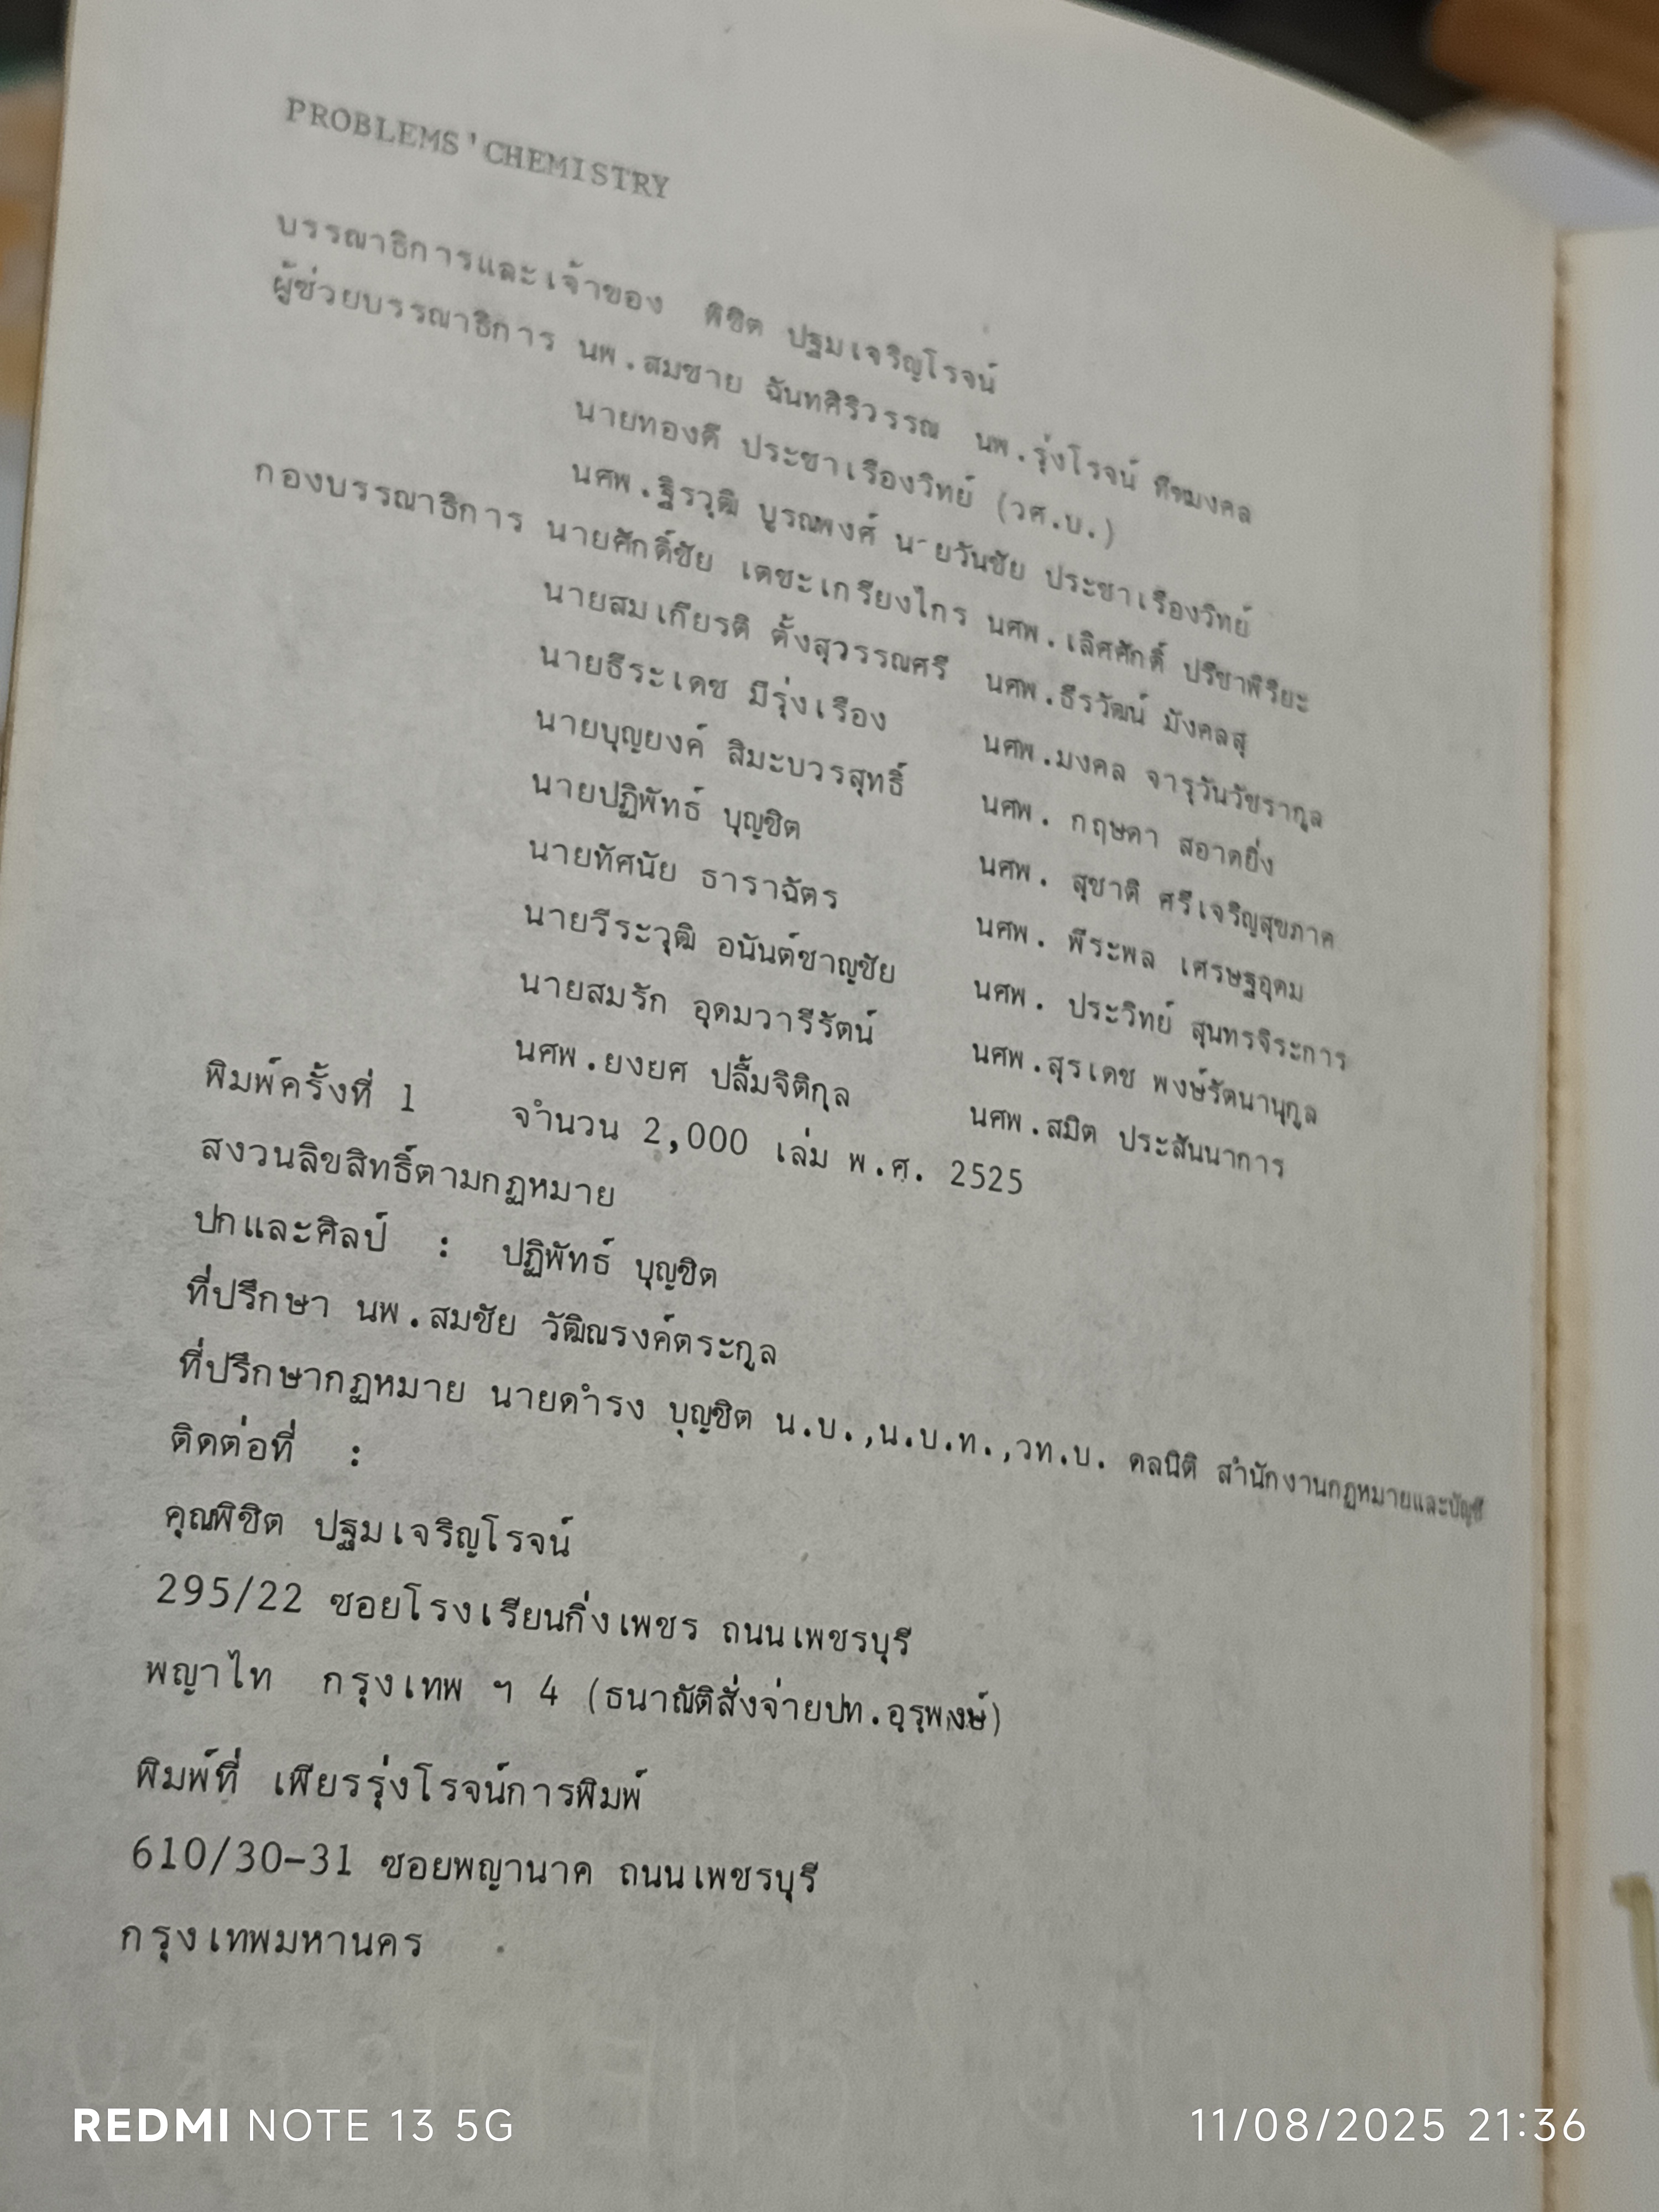 PROBLEMS'CHEMISTRY
บรรณาธิการและเจ้าของ พิชิต ปฐมเจริญโรจน์
ผู้ช่วยบรรณาธิการ นพ.สมชาย ฉันทศิริวรรณ นพ.รุ่งโรจน์ พืชมงคล
นายทองดี ประชาเรืองวิทย์ (วศ.บ.)
นศพ.ฐิรวุฒิ บูรณพงศ์ นายวันชัย ประชาเรืองวิทย์
กองบรรณาธิการ นายศักดิ์ชัย เตชะเกรียงไกร นศพ.เลิศศักดิ์ ปรีชาพิริยะ
นายสมเกียรติ ตั้งสุวรรณศรี นศพ.ธีรวัฒน์ มังคลสุ
นายธีระเดช มีรุ่งเรือง นศพ.มงคล จารุวันวัชรากูล
นายบุญยงค์ สิมะบวรสุทธิ์ นศพ. กฤษดา สอาดยิ่ง
นายปฏิพัทธ์ บุญชิต นศพ. สุชาติ ศรีเจริญสุขภาค
นายทัศนัย ธาราฉัตร นศพ. พีระพล เศรษฐอุดม
นายวีระวุฒิ อนันต์ชาญชัย นศพ. ประวิทย์ สุนทรจิระการ
นายสมรัก อุดมวารีรัตน์ นศพ.สุรเดช พงษ์รัตนานุกูล
นศพ.ยงยศ ปลื้มจิติกุล นศพ.สมิต ประสันนาการ
พิมพ์ครั้งที่ 1 จำนวน 2,000 เล่ม พ.ศ. 2525
สงวนลิขสิทธิ์ตามกฏหมาย
ปกและศิลป์ : ปฏิพัทธ์ บุญชิต
ที่ปรึกษา นพ.สมชัย วัฒิณรงค์ตระกูล
ที่ปรึกษากฏหมาย นายดำรง บุญชิต น.บ.,น.บ.ท.,วท.บ. ดลนิติ สำนักงานกฏหมายและบัญชี
ติดต่อที่ :
คุณพิชิต ปฐมเจริญโรจน์
295/22 ซอยโรงเรียนกิ่งเพชร ถนนเพชรบุรี
พญาไท กรุงเทพ ฯ 4 (ธนาณัติสั่งจ่ายปท.อุรุพงษ์)
พิมพ์ที่ เพียรรุ่งโรจน์การพิมพ์
610/30-31 ซอยพญานาค ถนนเพชรบุรี
กรุงเทพมหานคร
REDMI NOTE 13 5G
11/08/2025 21:36